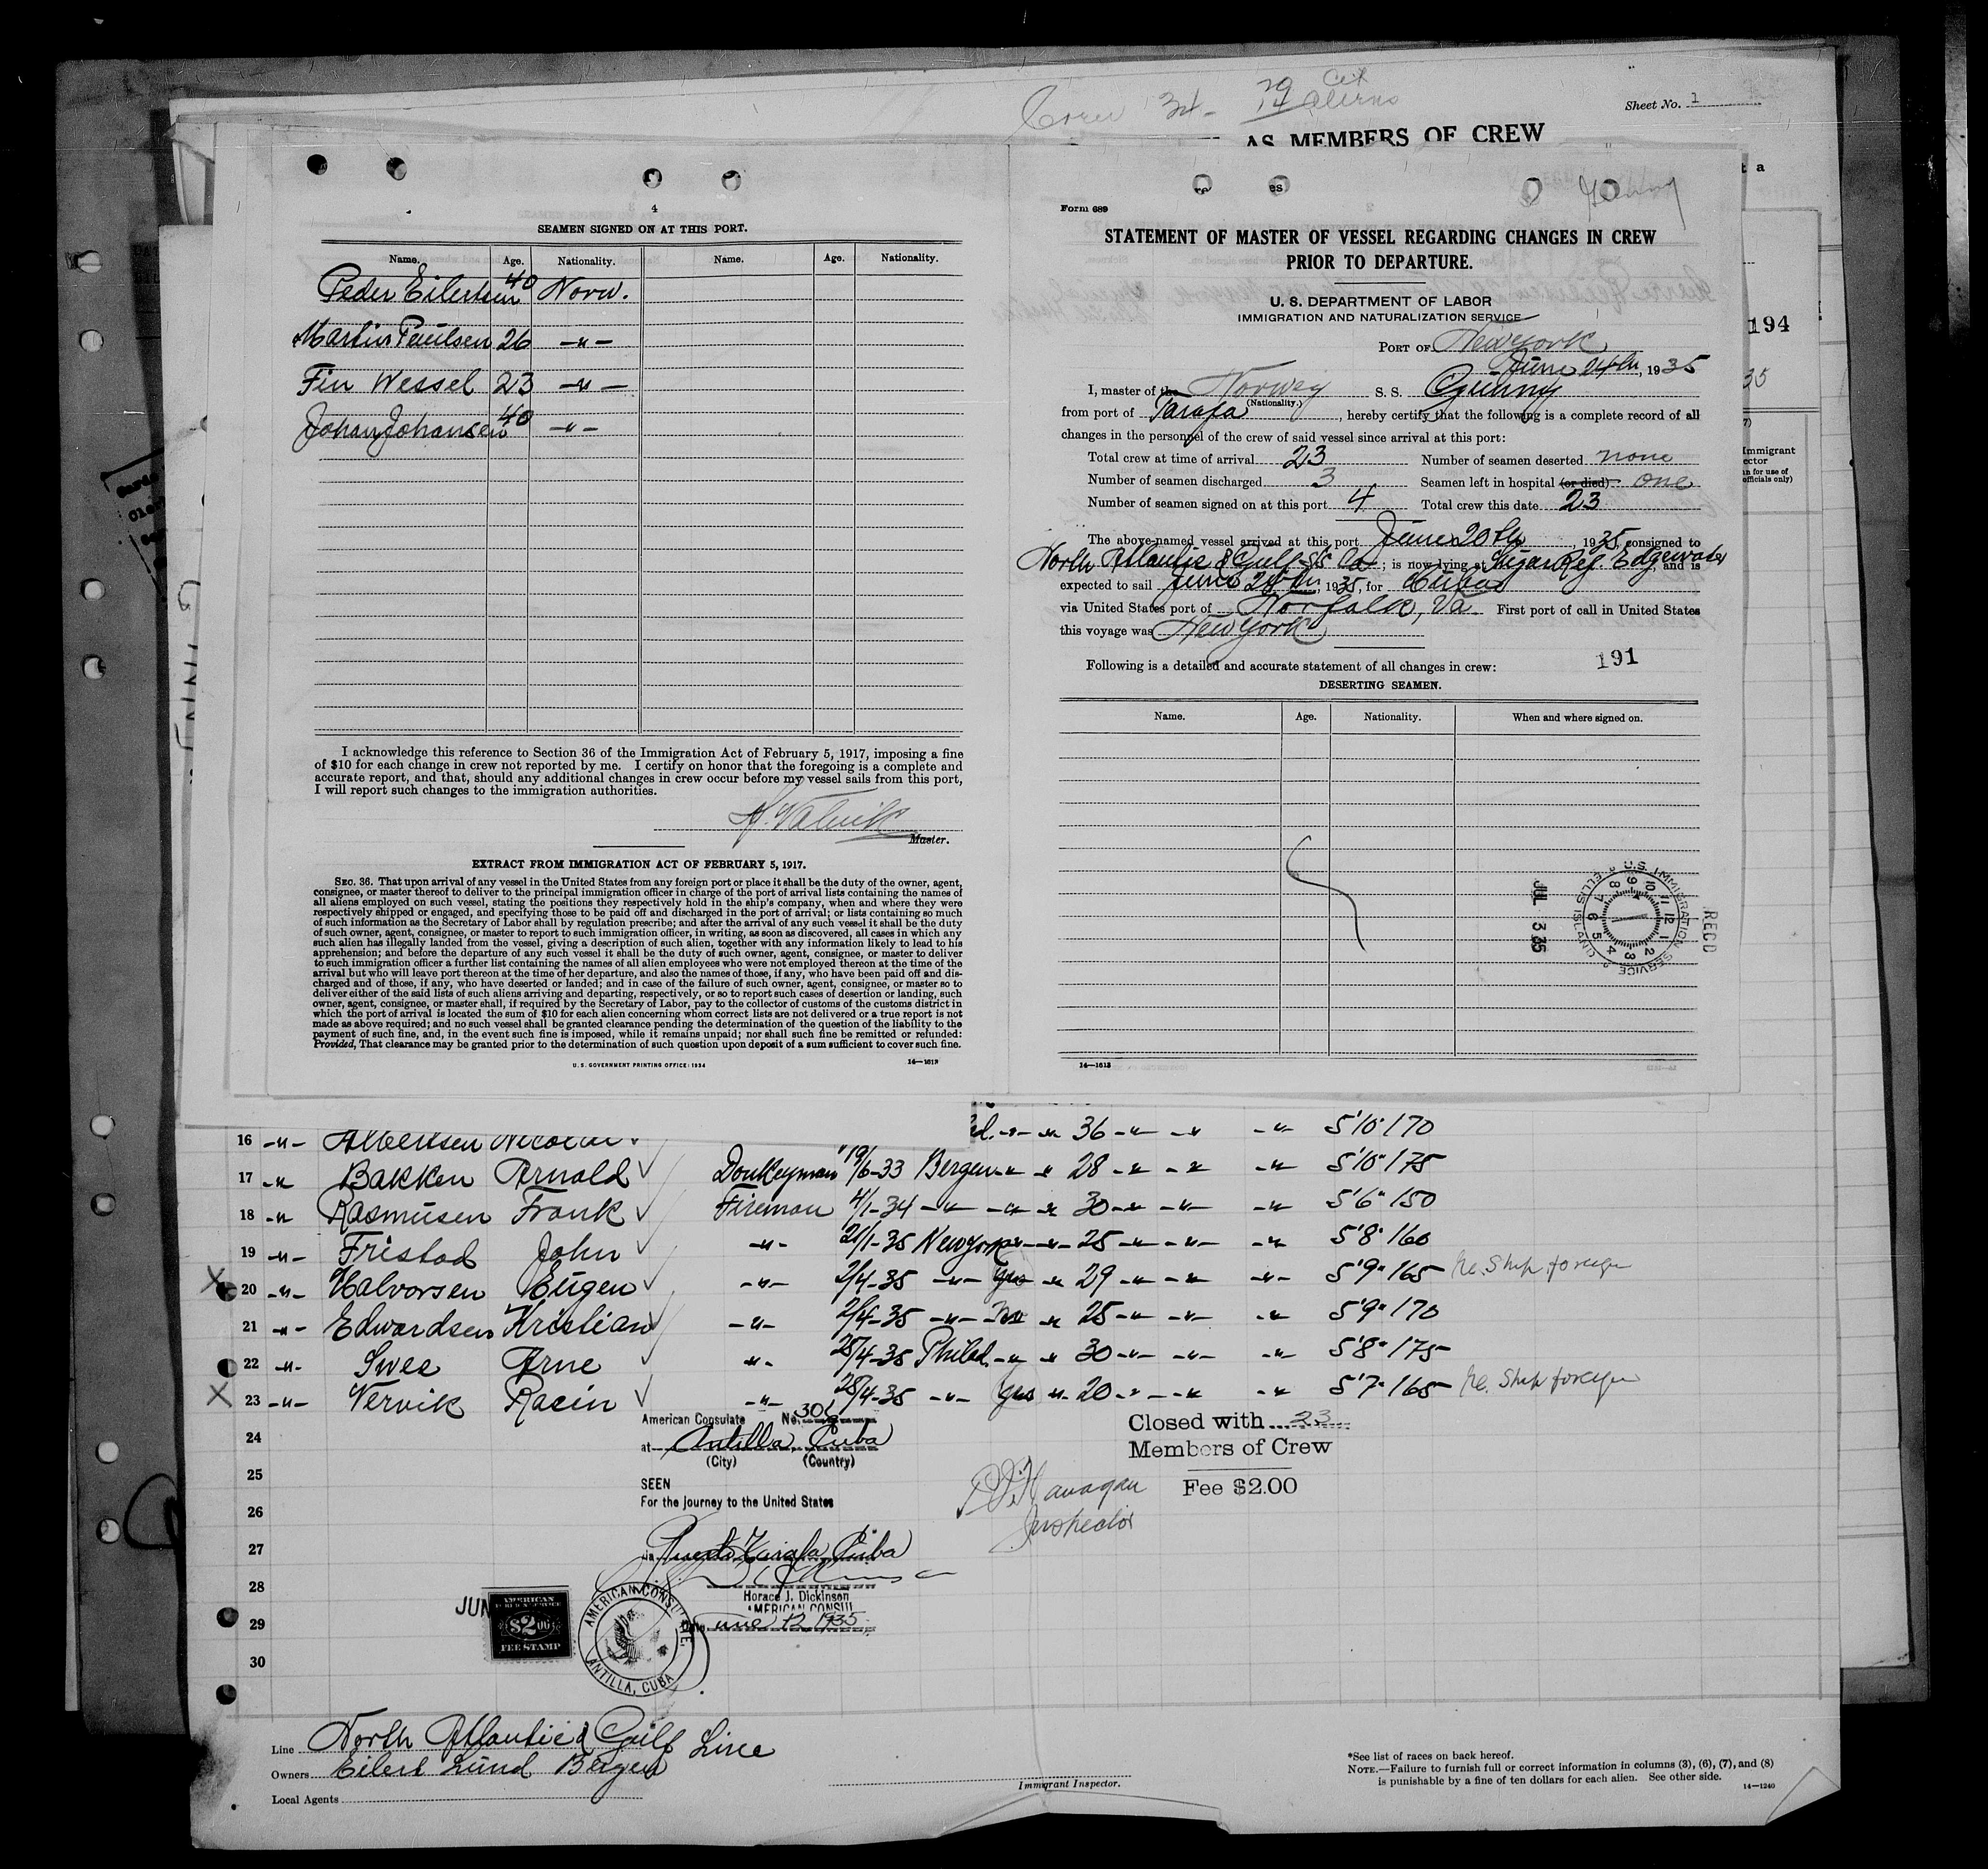 Crew 34-
Sheet No. 1
AS MEMBERS OF CREW
4
SEAMEN SIGNED ON AT THIS PORT.
Name. Age. Nationality. Name. Age. Nationality.
Peder Eilertsen 40 Norw.
Martin Paulsen 26 -"-
Fin Wessel 23 -"-
Johan Johansen 40 -"-
I acknowledge this reference to Section 36 of the Immigration Act of February 5, 1917, imposing a fine
of $10 for each change in crew not reported by me. I certify on honor that the foregoing is a complete and
accurate report, and that, should any additional changes in crew occur before my vessel sails from this port,
I will report such changes to the immigration authorities.
Master.
EXTRACT FROM IMMIGRATION ACT OF FEBRUARY 5, 1917.
SEC. 36. That upon arrival of any vessel in the United States from any foreign port or place it shall be the duty of the owner, agent,
consignee, or master thereof to deliver to the principal immigration officer in charge of the port of arrival lists containing the names of
all aliens employed on such vessel, stating the positions they respectively hold in the ship's company, when and where they were
respectively shipped or engaged, and specifying those to be paid off and discharged in the port of arrival; or lists containing so much
of such information as the Secretary of Labor shall by regulation prescribe; and after the arrival of any such vessel it shall be the duty
of such owner, agent, consignee, or master to report to such immigration officer, in writing, as soon as discovered, all cases in which any
such alien has illegally landed from the vessel, giving a description of such alien, together with any information likely to lead to his
apprehension; and before the departure of any such vessel it shall be the duty of such owner, agent, consignee, or master to deliver
to such immigration officer a further list containing the names of all alien employees who were not employed thereon at the time of the
arrival but who will leave port thereon at the time of her departure, and also the names of those, if any, who have been paid off and dis-
charged and of those, if any, who have deserted or landed; and in case of the failure of such owner, agent, consignee, or master so to
deliver either of the said lists of such aliens arriving and departing, respectively, or so to report such cases of desertion or landing, such
owner, agent, consignee, or master shall, if required by the Secretary of Labor, pay to the collector of customs of the customs district in
which the port of arrival is located the sum of $10 for each alien concerning whom correct lists are not delivered or a true report is not
made as above required; and no such vessel shall be granted clearance pending the determination of the question of the liability to the
payment of such fine, and, in the event such fine is imposed, while it remains unpaid; nor shall such fine be remitted or refunded:
Provided, That clearance may be granted prior to the determination of such question upon deposit of a sum sufficient to cover such fine.
U. S. GOVERNMENT PRINTING OFFICE: 1934 14—1613
Gunny
Form 689
STATEMENT OF MASTER OF VESSEL REGARDING CHANGES IN CREW
PRIOR TO DEPARTURE.
U. S. DEPARTMENT OF LABOR
IMMIGRATION AND NATURALIZATION SERVICE
PORT OF New York
June 24th, 1935
I, master of the Norweg S. S. Gunny
(Nationality.)
from port of Tarafa, hereby certify that the following is a complete record of all
changes in the personnel of the crew of said vessel since arrival at this port:
Total crew at time of arrival 23 Number of seamen deserted none
Number of seamen discharged 3 Seamen left in hospital (or died) one
Number of seamen signed on at this port 4 Total crew this date 23
The above-named vessel arrived at this port June 20th, 1935, consigned to
North Atlantic & Gulf SS Co; is now lying at Sugar Ref. Edgewater, and is
expected to sail June 24th, 1935, for Cuba
via United States port of Norfolk, Va First port of call in United States
this voyage was New York
191
Following is a detailed and accurate statement of all changes in crew:
DESERTING SEAMEN.
Name. Age. Nationality. When and where signed on.
U.S. IMMIGRATION SERVICE ELLIS ISLAND
REC'D
JUL 3 35
14—1613
194
35
Immigrant
officials only)
16 -"- Albertsen Nicolai -"- 36 -"- -"- -"- 5'10" 170
17 -"- Bakken Arnold Donkeyman 19/6-33 Bergen -"- -"- 28 -"- -"- -"- 5'10" 175
18 -"- Rasmusen Frank Fireman 4/1-34 -"- -"- -"- 30 -"- -"- -"- 5'6" 150
19 -"- Fristad John -"- 21/1-35 New york -"- -"- 25 -"- -"- -"- 5'8" 160
20 -"- Halvorsen Eugen -"- 2/4-35 -"- yes -"- 29 -"- -"- -"- 5'9" 165 Re. Ship foreign
21 -"- Edwardsen Kristian -"- 2/4-35 -"- no -"- 25 -"- -"- -"- 5'9" 170
22 -"- Swee Arne -"- 25/4-35 Philad. -"- -"- 30 -"- -"- -"- 5'8" 175
23 -"- Vervik Racin -"- 25/4-35 -"- yes -"- 20 -"- -"- -"- 5'7" 165 Re. Ship foreign
24
25
26
27
28
29
30
American Consulate No. 30
at Antilla, Cuba
(City) (Country)
SEEN
For the journey to the United States
via Puerto Tarafa, Cuba
Horace J. Dickinson
AMERICAN CONSUL
Date June 12 1935
Closed with 23
Members of Crew
Fee $2.00
Inspector
JUN
AMERICAN
$2.00
FEE STAMP
AMERICAN CONSULATE,
ANTILLA, CUBA
Line North Atlantic & Gulf Line
Owners Eilert Lund Bergen
Local Agents
Immigrant Inspector.
*See list of races on back hereof.
NOTE.—Failure to furnish full or correct information in columns (3), (6), (7), and (8)
is punishable by a fine of ten dollars for each alien. See other side.
14—1240